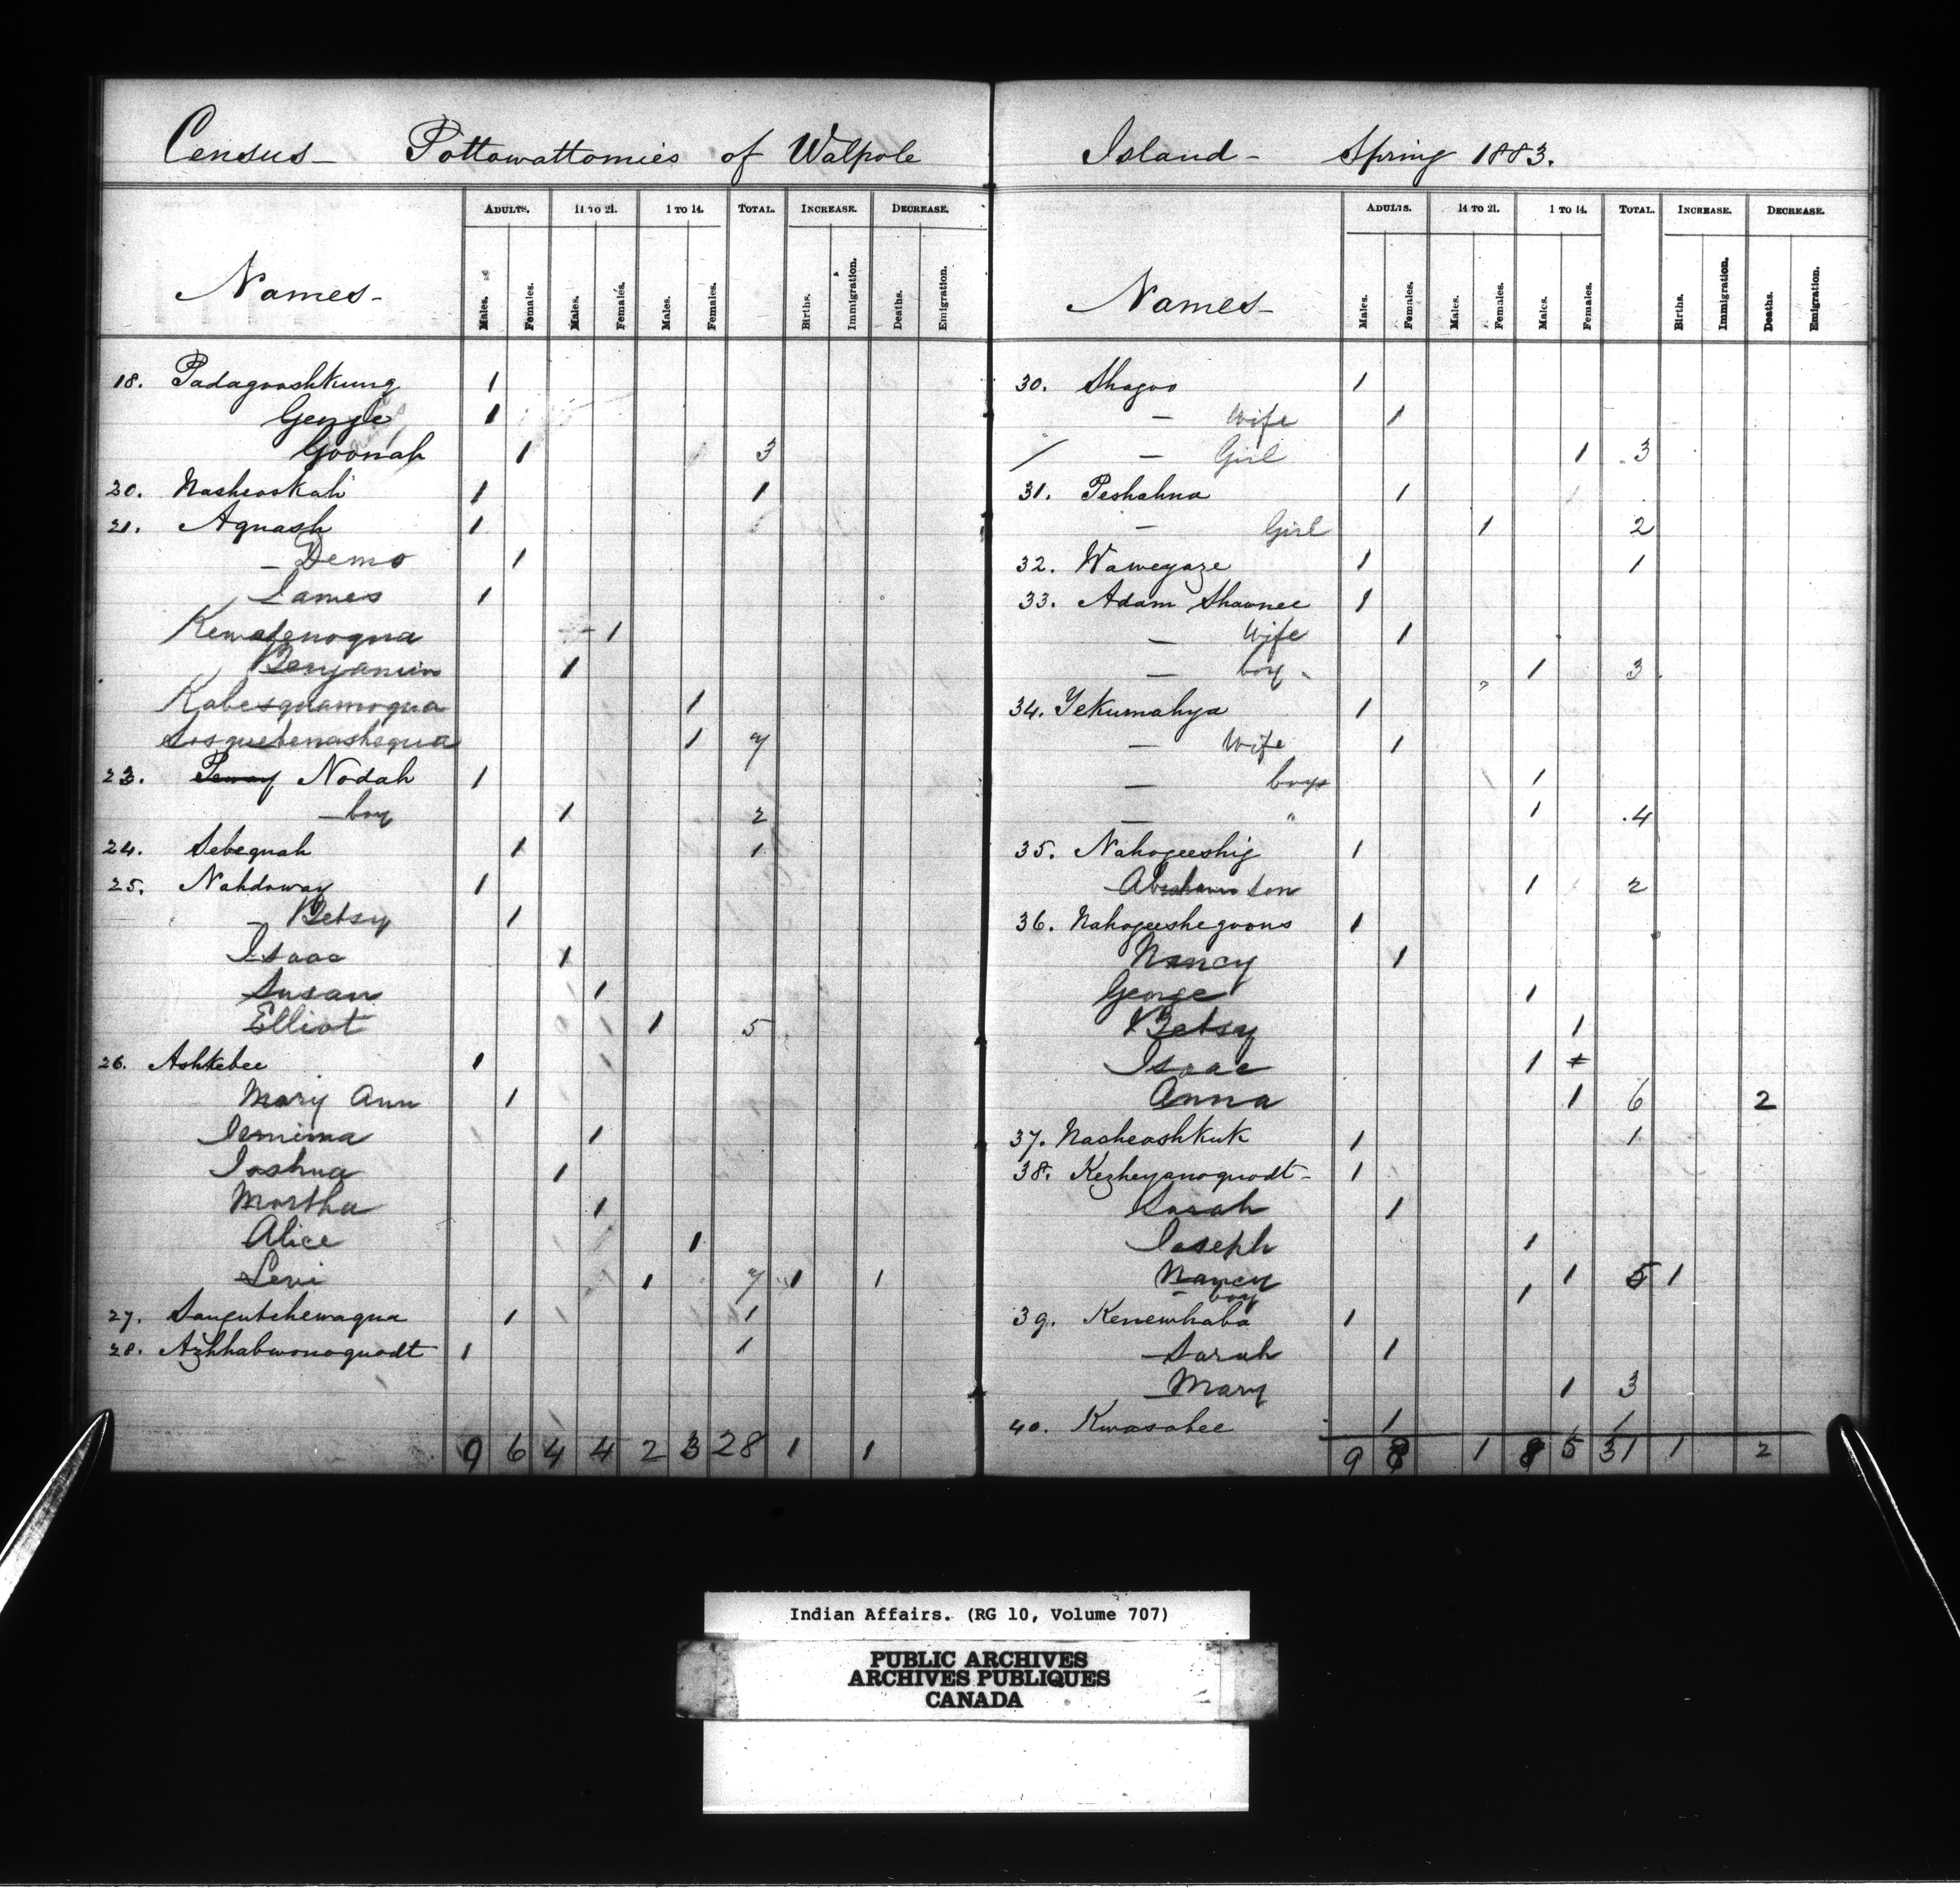 Census - Pottowattomies of Walpole
Names - ADULTS. 14 TO 21. 1 TO 14. TOTAL. INCREASE. DECREASE.
Males. Females. Males. Females. Males. Females. Births. Immigration. Deaths. Emigration.
18. Padagooshkung 1
George 1
Goonah 1 3
20. Nasheoskah 1 1
21. Aquash 1
- Demo 1
James 1
Kewatenoqua 1
Benjamin 1
Kabesquamoqua 1
Sosquebenashequa 1 7
23. Nodah 1
- boy 1 2
24. Sebequah 1 1
25. Nahdoway 1
- Betsy 1
Isaac 1
Susan 1
Elliot 1 5
26. Ashkebee 1
Mary Ann 1
Jemima 1
Joshua 1
Martha 1
Alice 1
Levi 1 7 1 1
27. Saugutchewaqua 1 1
28. Azhhabwonoquodt 1 1
9 6 4 4 2 3 28 1 1
Island - Spring 1883.
Names - ADULTS. 14 TO 21. 1 TO 14. TOTAL. INCREASE. DECREASE.
Males. Females. Males. Females. Males. Females. Births. Immigration. Deaths. Emigration.
30. Shagoo 1
- Wife 1
/ - Girl 1 3
31. Peshahna 1
- Girl 1 2
32. Waweyaze 1 1
33. Adam Shawnee 1
- Wife 1
- boy - 1 3
34. Yekumahya 1
- Wife 1
- boys 1
- " 1 4
35. Nahogeeshig 1
Abraham Son 1 2
36. Nahogeeshegoons 1
Nancy 1
George 1
Betsy 1
Isaac 1
Anna 1 6 2
37. Nasheoshkuk 1 1
38. Kezheyanoquodt - 1
Sarah 1
Joseph 1
Nancy 1 5 1
- boy 1
39. Kenewhaba 1
- Sarah 1
- Mary 1 3
40. Kwasabee 1 1
9 8 1 8 5 31 1 2
Indian Affairs. (RG 10, Volume 707)
PUBLIC ARCHIVES
ARCHIVES PUBLIQUES
CANADA